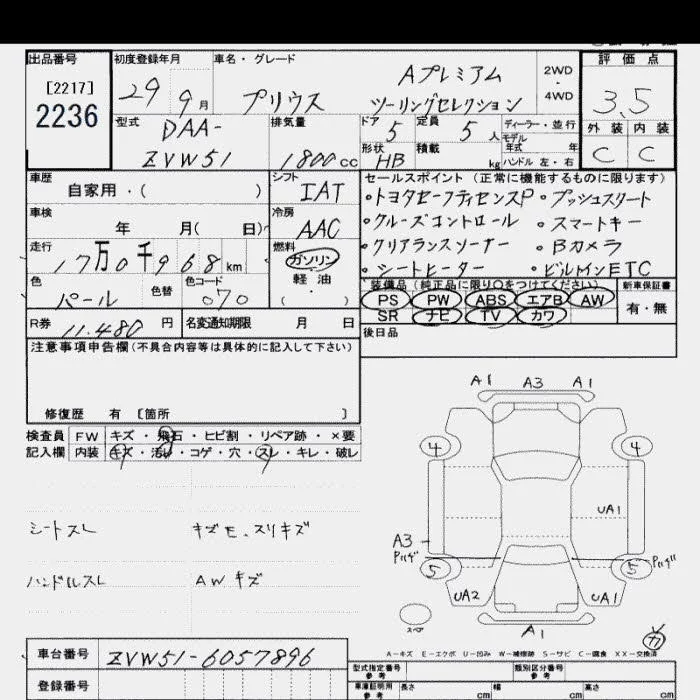 出品番号
[2217]
2236
初度登録年月
29 9月
車名・グレード
プリウス
Aプレミアム
ツーリングセレクション
2WD
4WD
評価点
3.5
外装 内装
C C
型式
DAA-
ZVW51
排気量
1800cc
ドア 5
定員 5人
形状 HB
積載 kg
ディーラー・並行
モデル
年式 年
ハンドル 左・右
車歴
自家用・( )
シフト
IAT
車検
年 月( 日)
冷房
AAC
走行
17万0千968km
燃料
ガソリン
軽油
( )
色
パール
色替
色コード
070
R券 11.480円
名変通知期限 月 日
セールスポイント(正常に機能するものに限ります)
・トヨタセーフティセンスP ・プッシュスタート
・クルーズコントロール ・スマートキー
・クリアランスソナー ・Bカメラ
・シートヒーター ・ビルトインETC
装備品(純正品に限り○をつけてください)
PS PW ABS エアB AW
SR ナビ TV カワ
新車保証書
有・無
後日品
注意事項申告欄(不具合内容等は具体的に記入して下さい)
修復歴 有 [箇所 ]
検査員
記入欄
FW キズ・飛石・ヒビ割・リペア跡・×要
内装 キズ・汚レ・コゲ・穴・スレ・キレ・破レ
シートスレ キズモ、スリキズ
ハンドルスレ AWキズ
A1 A3 A1
4 4
UA1
A3
5 5
UA2 UA1
A1
スペア
カ
A-キズ E-エクボ U-凹み W-補修跡 S-サビ C-腐食 XX-交換済
車台番号 ZVW51-6057896
登録番号
型式指定番号
参考
類別区分番号
参考
車庫証明用
参考
長さ cm
幅 cm
高さ cm